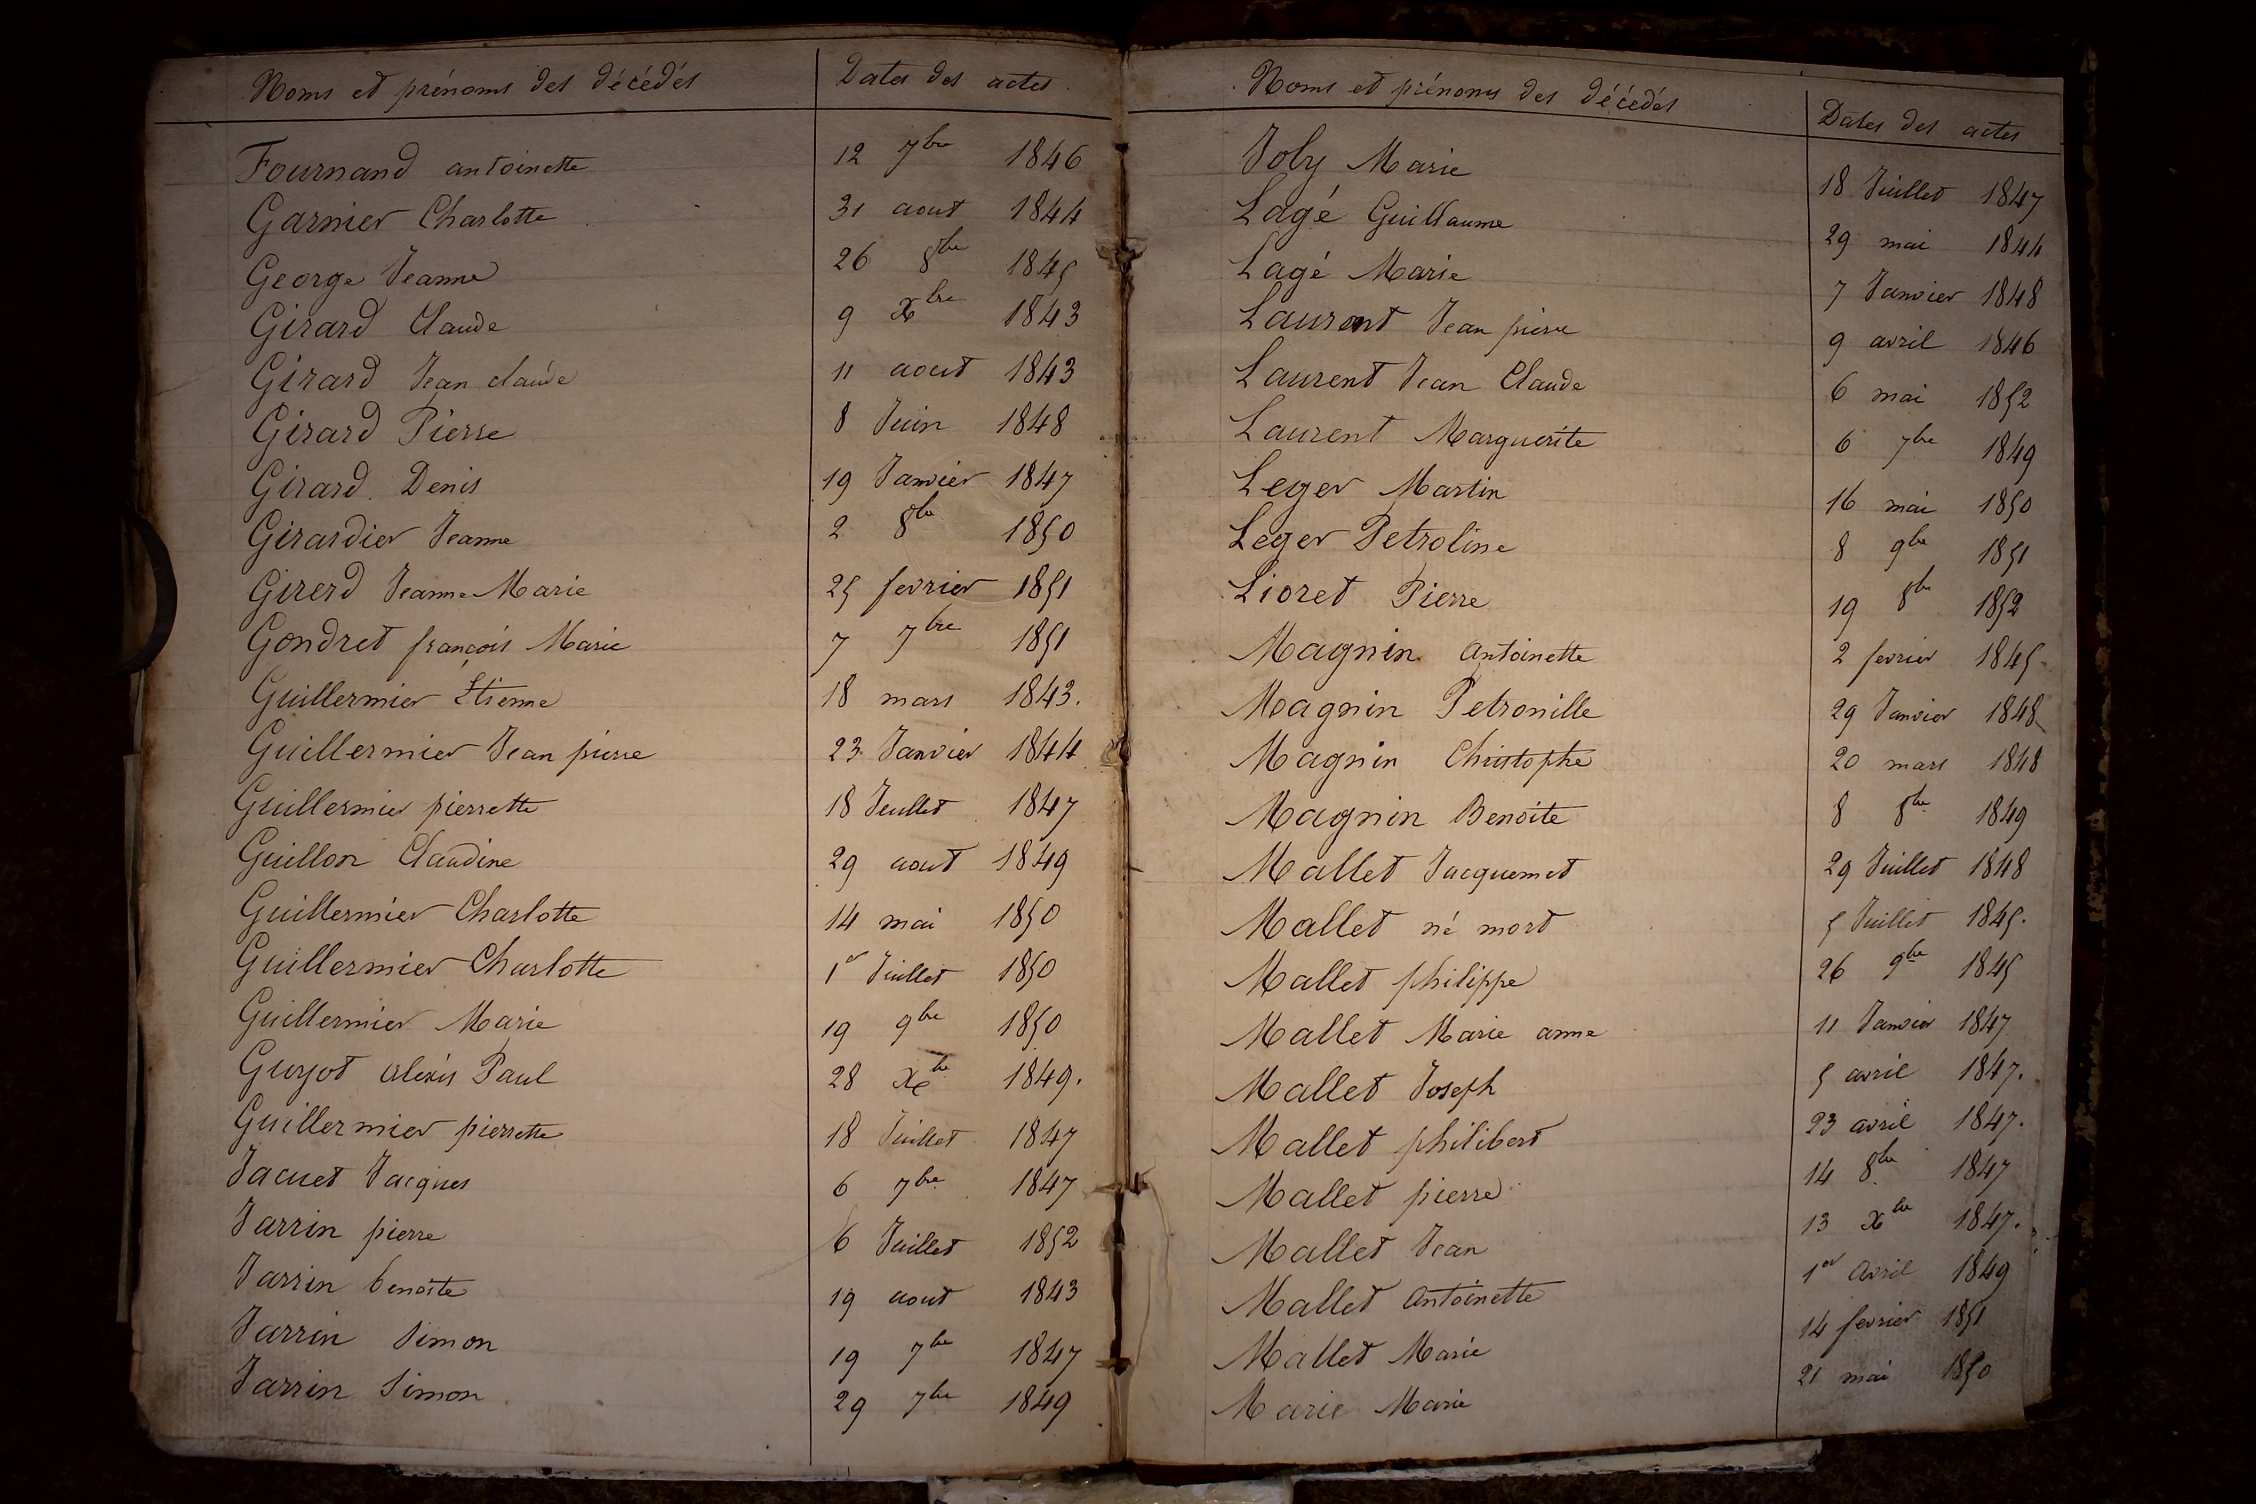 Noms et prénoms des décédés Dates des actes
Fournand antoinette 12 7bre 1846
Garnier Charlotte 31 aout 1844
George Jeanne 26 8bre 1845
Girard Claude 9 Xbre 1843
Girard Jean claude 11 aout 1843
Girard Pierre 8 Juin 1848
Girard Denis 19 Janvier 1847
Girardier Jeanne 2 8bre 1850
Girerd Jeanne Marie 25 fevrier 1851
Gondret françois Marie 7 7bre 1851
Guillermier Etienne 18 mars 1843.
Guillermier Jean pierre 23 Janvier 1844
Guillermier pierrette 18 Juillet 1847
Guillon Claudine 29 aout 1849
Guillermier Charlotte 14 mai 1850
Guillermier Charlotte 1er Juillet 1850
Guillermier Marie 19 9bre 1850
Guyot alexis Paul 28 Xbre 1849.
Guillermier pierrette 18 Juillet 1847
Jacuet Jacques 6 7bre 1847
Jarrin pierre 6 Juillet 1852
Jarrin benoite 19 aout 1843
Jarrin Simon 19 7bre 1847
Jarrin Simon 29 7bre 1849
Noms et prénoms des décédés Dates des actes
Joly Marie 18 Juillet 1847
Lagé Guillaume 29 mai 1844
Lagé Marie 7 Janvier 1848
Laurent Jean pierre 9 avril 1846
Laurent Jean Claude 6 mai 1852
Laurent Marguerite 6 7bre 1849
Leger Martin 16 mai 1850
Leger Petroline 8 9bre 1851
Lioret Pierre 19 8bre 1852
Magnin Antoinette 2 fevrier 1845
Magnin Petronille 29 Janvier 1848
Magnin Christophe 20 mars 1848
Magnin Benoite 8 8bre 1849
Mallet Jacquemet 29 Juillet 1848
Mallet né mort 5 Juillet 1845.
Mallet philippe 26 9bre 1845
Mallet Marie anne 11 Janvier 1847
Mallet Joseph 5 avril 1847.
Mallet philibert 23 avril 1847.
Mallet pierre 14 8bre 1847
Mallet Jean 13 Xbre 1847.
Mallet Antoinette 1er Avril 1849
Mallet Marie 14 fevrier 1851
Marie Marie 21 mai 1850